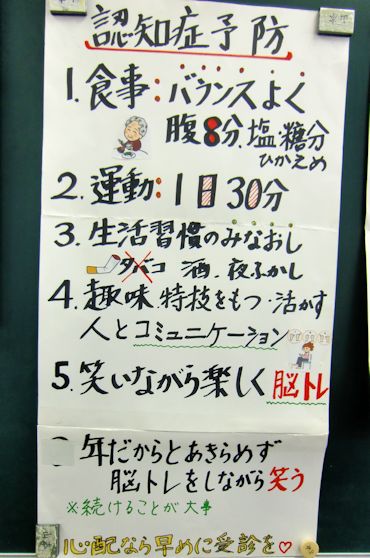 認知症予防
1.食事:バランスよく
腹8分、塩・糖分
ひかえめ
2.運動:1日30分
3.生活習慣のみなおし
タバコ 酒、夜ふかし
4.趣味、特技をもつ・活かす
人とコミュニケーション
5.笑いながら楽しく脳トレ
年だからとあきらめず
脳トレをしながら笑う
※続けることが大事
心配なら早めに受診を♡